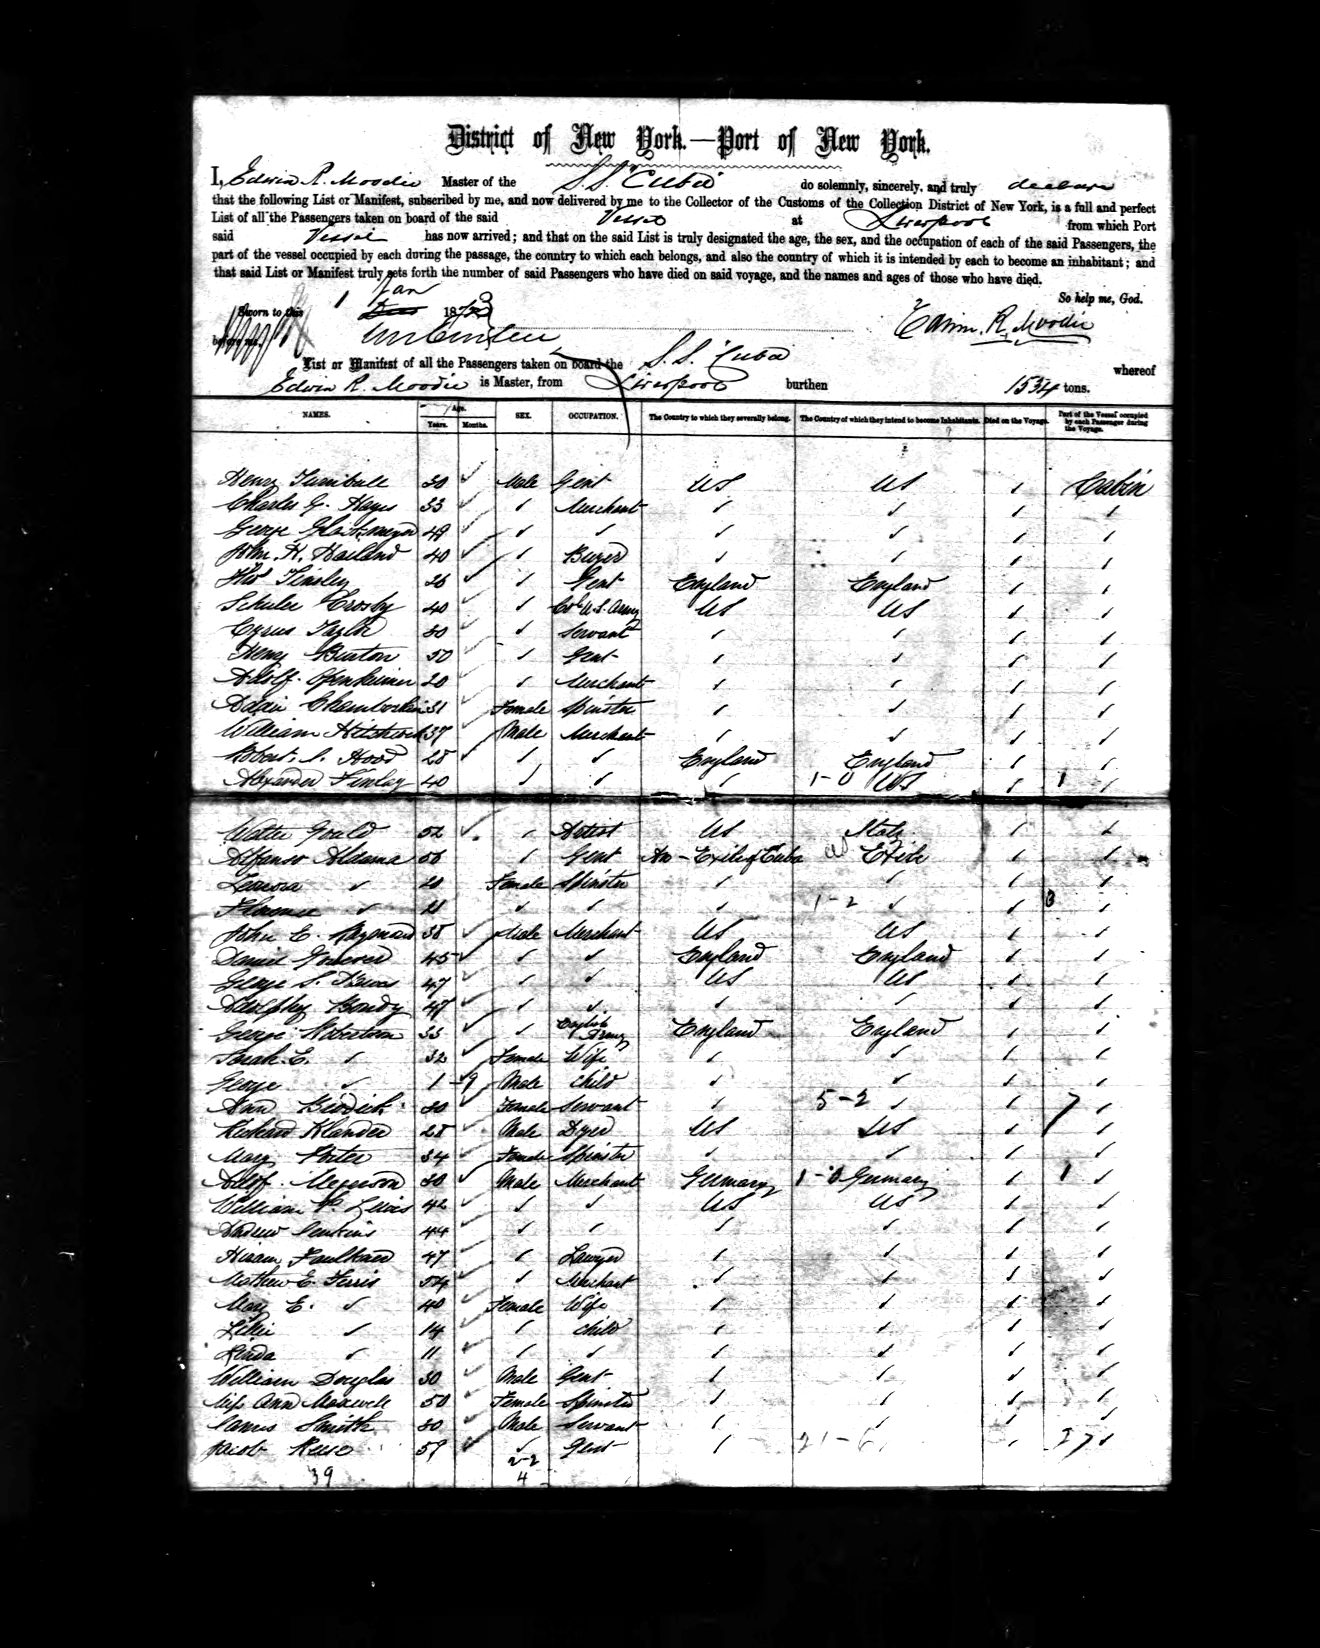 District of New York.—Port of New York.
I, Edwin R. Moodie Master of the S.S. "Cuba" do solemnly, sincerely, and truly declare
that the following List or Manifest, subscribed by me, and now delivered by me to the Collector of the Customs of the Collection District of New York, is a full and perfect
List of all the Passengers taken on board of the said Vessel at Liverpool from which Port
said Vessel has now arrived; and that on the said List is truly designated the age, the sex, and the occupation of each of the said Passengers, the
part of the vessel occupied by each during the passage, the country to which each belongs, and also the country of which it is intended by each to become an inhabitant; and
that said List or Manifest truly sets forth the number of said Passengers who have died on said voyage, and the names and ages of those who have died.
So help me, God.
Sworn to this 1 Jan 1873
before me. Edwin R. Moodie
List or Manifest of all the Passengers taken on board the S.S. "Cuba" whereof
Edwin R. Moodie is Master, from Liverpool burthen 1534 tons.
NAMES. Age. Years. Months. SEX. OCCUPATION. The Country to which they severally belong. The Country of which they intend to become Inhabitants. Died on the Voyage. Part of the Vessel occupied by each Passenger during the Voyage.
Henry Turnbull 30 Male Gent US US Cabin
Charles G. Hayes 33 Merchant
George 49
John H. 40 Buyer
Thos Tinsley 26 Gent England England
Schuler Crosby 40 Col U.S. Army US US
Cyrus Taylor 30 Servant
Henry Burton 50 Gent
Adolf Openheimer 20 Merchant
Addie Chamberlain 31 Female Spinster
William Hitchcock 37 Male Merchant
Robert Hood 28 England England
Alexander Finlay 40 1-0 US 1
Walter Gould 52 Artist US Italy
Alfonso Aldama 56 Gent An Exile of Cuba Exile
Leonora 20 Female Spinster
Florence 1-2 3
John E. 38 Male Merchant US US
Daniel 45 England England
George S. 47 US US
47
George Robertson 33 English Army England England
Sarah E. 32 Female Wife
George 1 9 Male Child
Ann 30 Female Servant 5-2 7
Richard 28 Male Dyer US US
Mary Porter 34 Female Spinster
Adolf 30 Male Merchant Germany 1-0 Germany 1
William Lewis 42 US US
Andrew Jenkins 44
Hiram 47 Lawyer
Mathew E. Ferris 54 Merchant
Mary E. 40 Female Wife
Lillie 14 Child
Linda 11
William Douglas 30 Male Gent
Miss Ann Maxwell 50 Female Spinster
James Smith 30 Male Servant
Jacob Reese 59 Gent 21-6 27
39 2-2
4